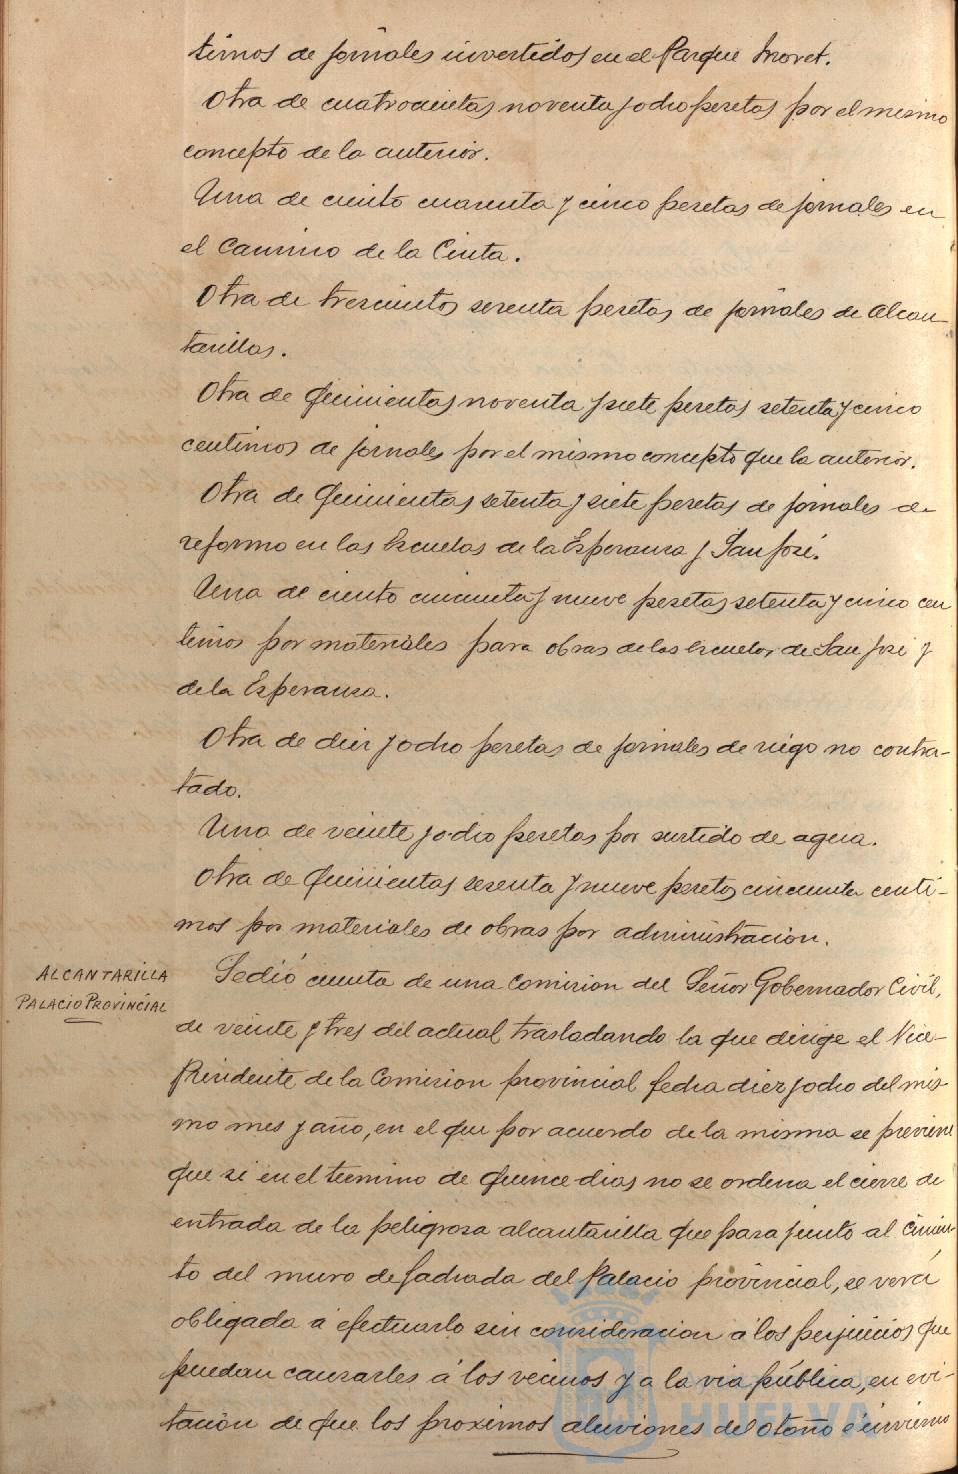 timos de jornales invertidos en el Parque Moret.
Otra de cuatrocientas noventa y ocho pesetas por el mismo
concepto de la anterior.
Una de ciento cuarenta y cinco pesetas de jornales en
el Camino de la Cinta.
Otra de trescientos sesenta pesetas de jornales de Alcan
tarillas.
Otra de Quinientas noventa y siete pesetas setenta y cinco
centimos de jornales por el mismo concepto que la anterior.
Otra de Quinientas setenta y siete pesetas de jornales de
reforma en las Escuelas de la Esperanza y San José.
Una de ciento cincuenta y nueve pesetas setenta y cinco cen
timos por materiales para obras de las Escuelas de San José y
de la Esperanza.
Otra de diez y ocho pesetas de jornales de riego no contra-
tado.
Una de veinte y ocho pesetas por surtido de agua.
Otra de Quinientas sesenta y nueve pesetas cincuenta centi-
mos por materiales de obras por administración.
ALCANTARILLA
PALACIO PROVINCIAL
Se dió cuenta de una Comision del Señor Gobernador Civil,
de veinte y tres del actual trasladando la que dirige el Vice-
Presidente de la Comision provincial fecha diez y ocho del mis-
mo mes y año, en el que por acuerdo de la misma se previene
que si en el termino de quince dias no se ordena el cierre de
entrada de la peligrosa alcantarilla que pasa junto al Cimien
to del muro de fachada del Palacio provincial, se verá
obligada á efectuarlo sin consideracion á los perjuicios que
puedan causarles á los vecinos y a la via pública, en evi-
tación de que los proximos aluviones del otoño é invierno
HUELVA